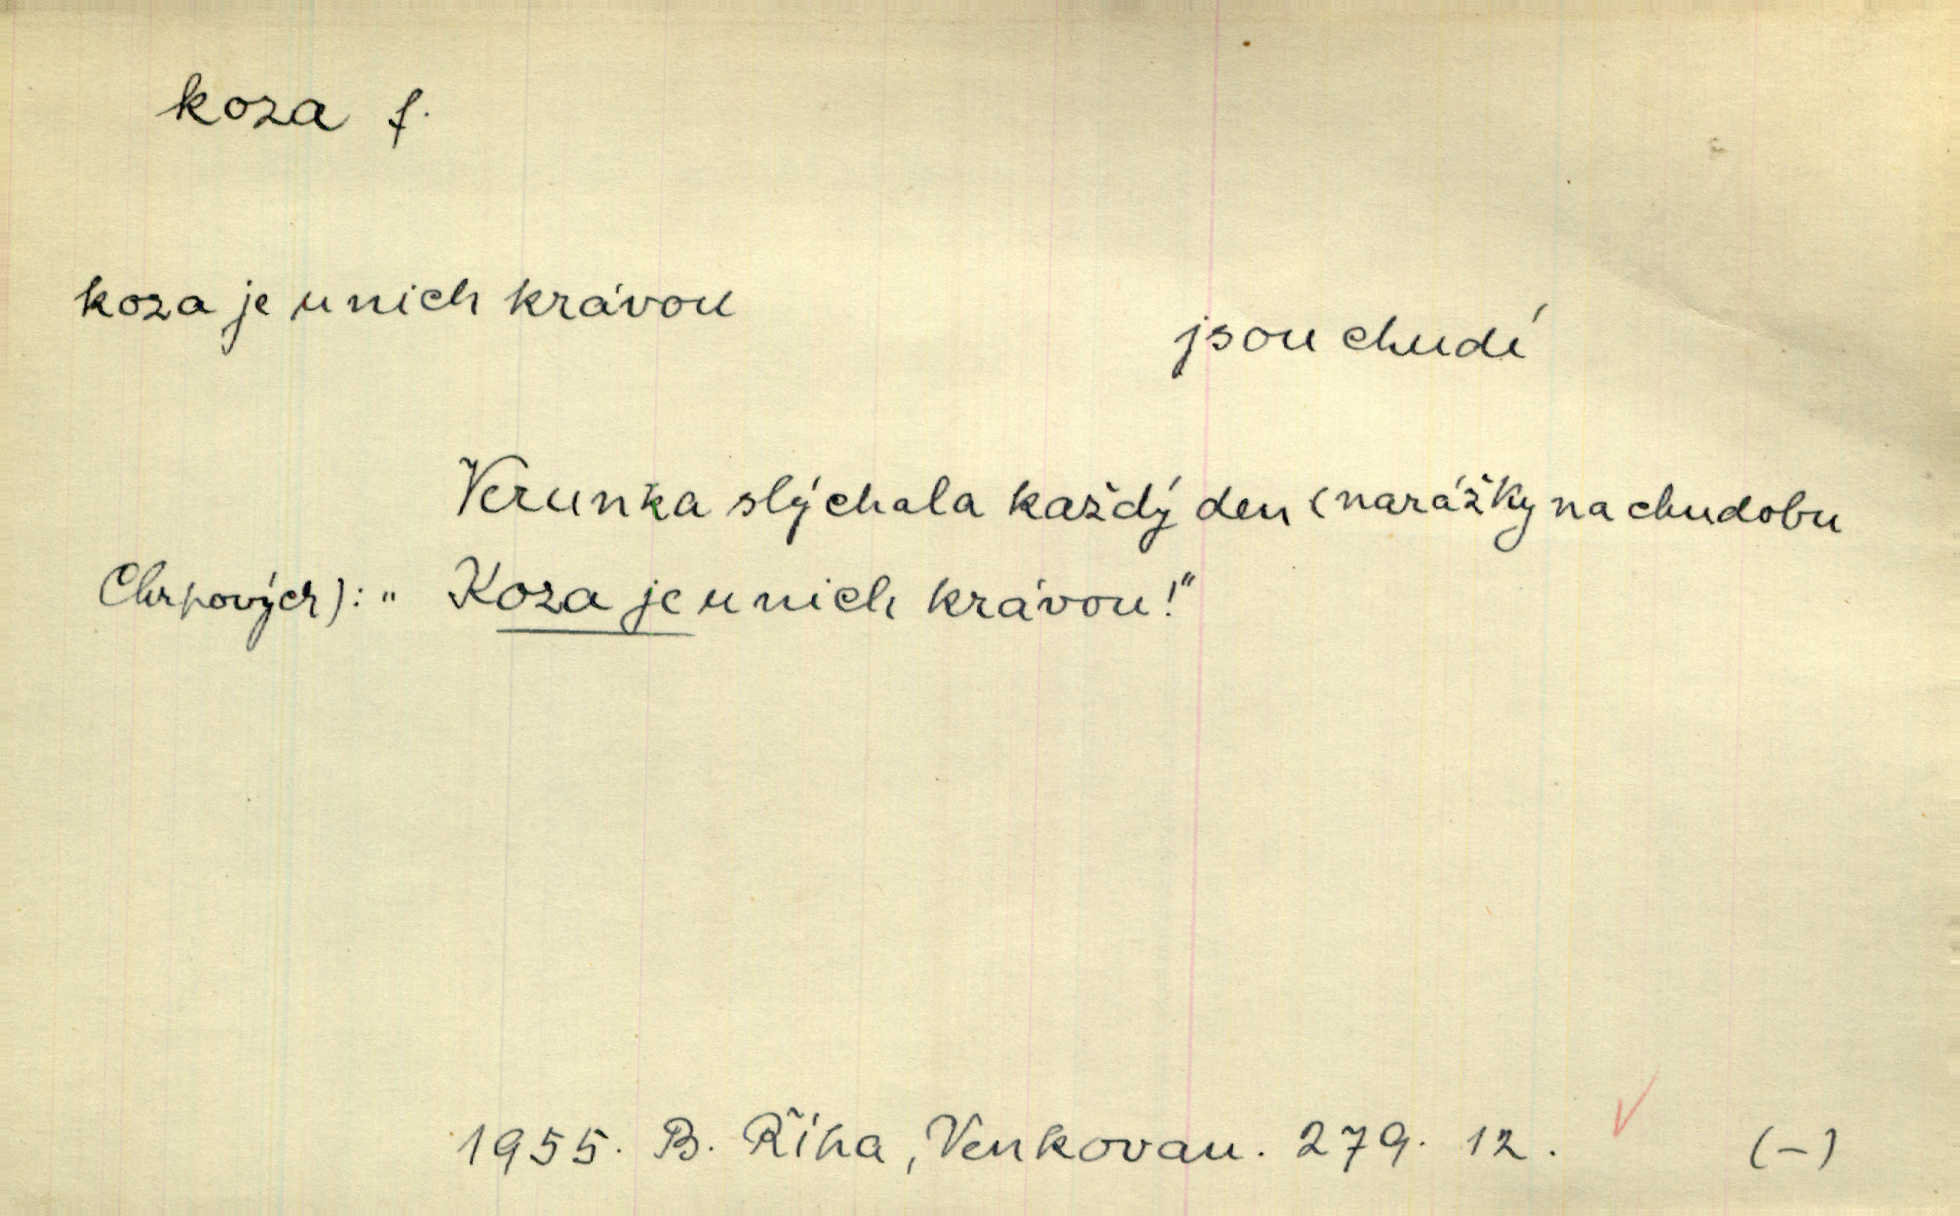 koza f.
koza je u nich krávou
jsou chudí
Verunka slýchala každý den (narážky na chudobu
Chrpových): „ Koza je u nich krávou!“
1955. B. Říha, Venkovan. 279. 12. (-)